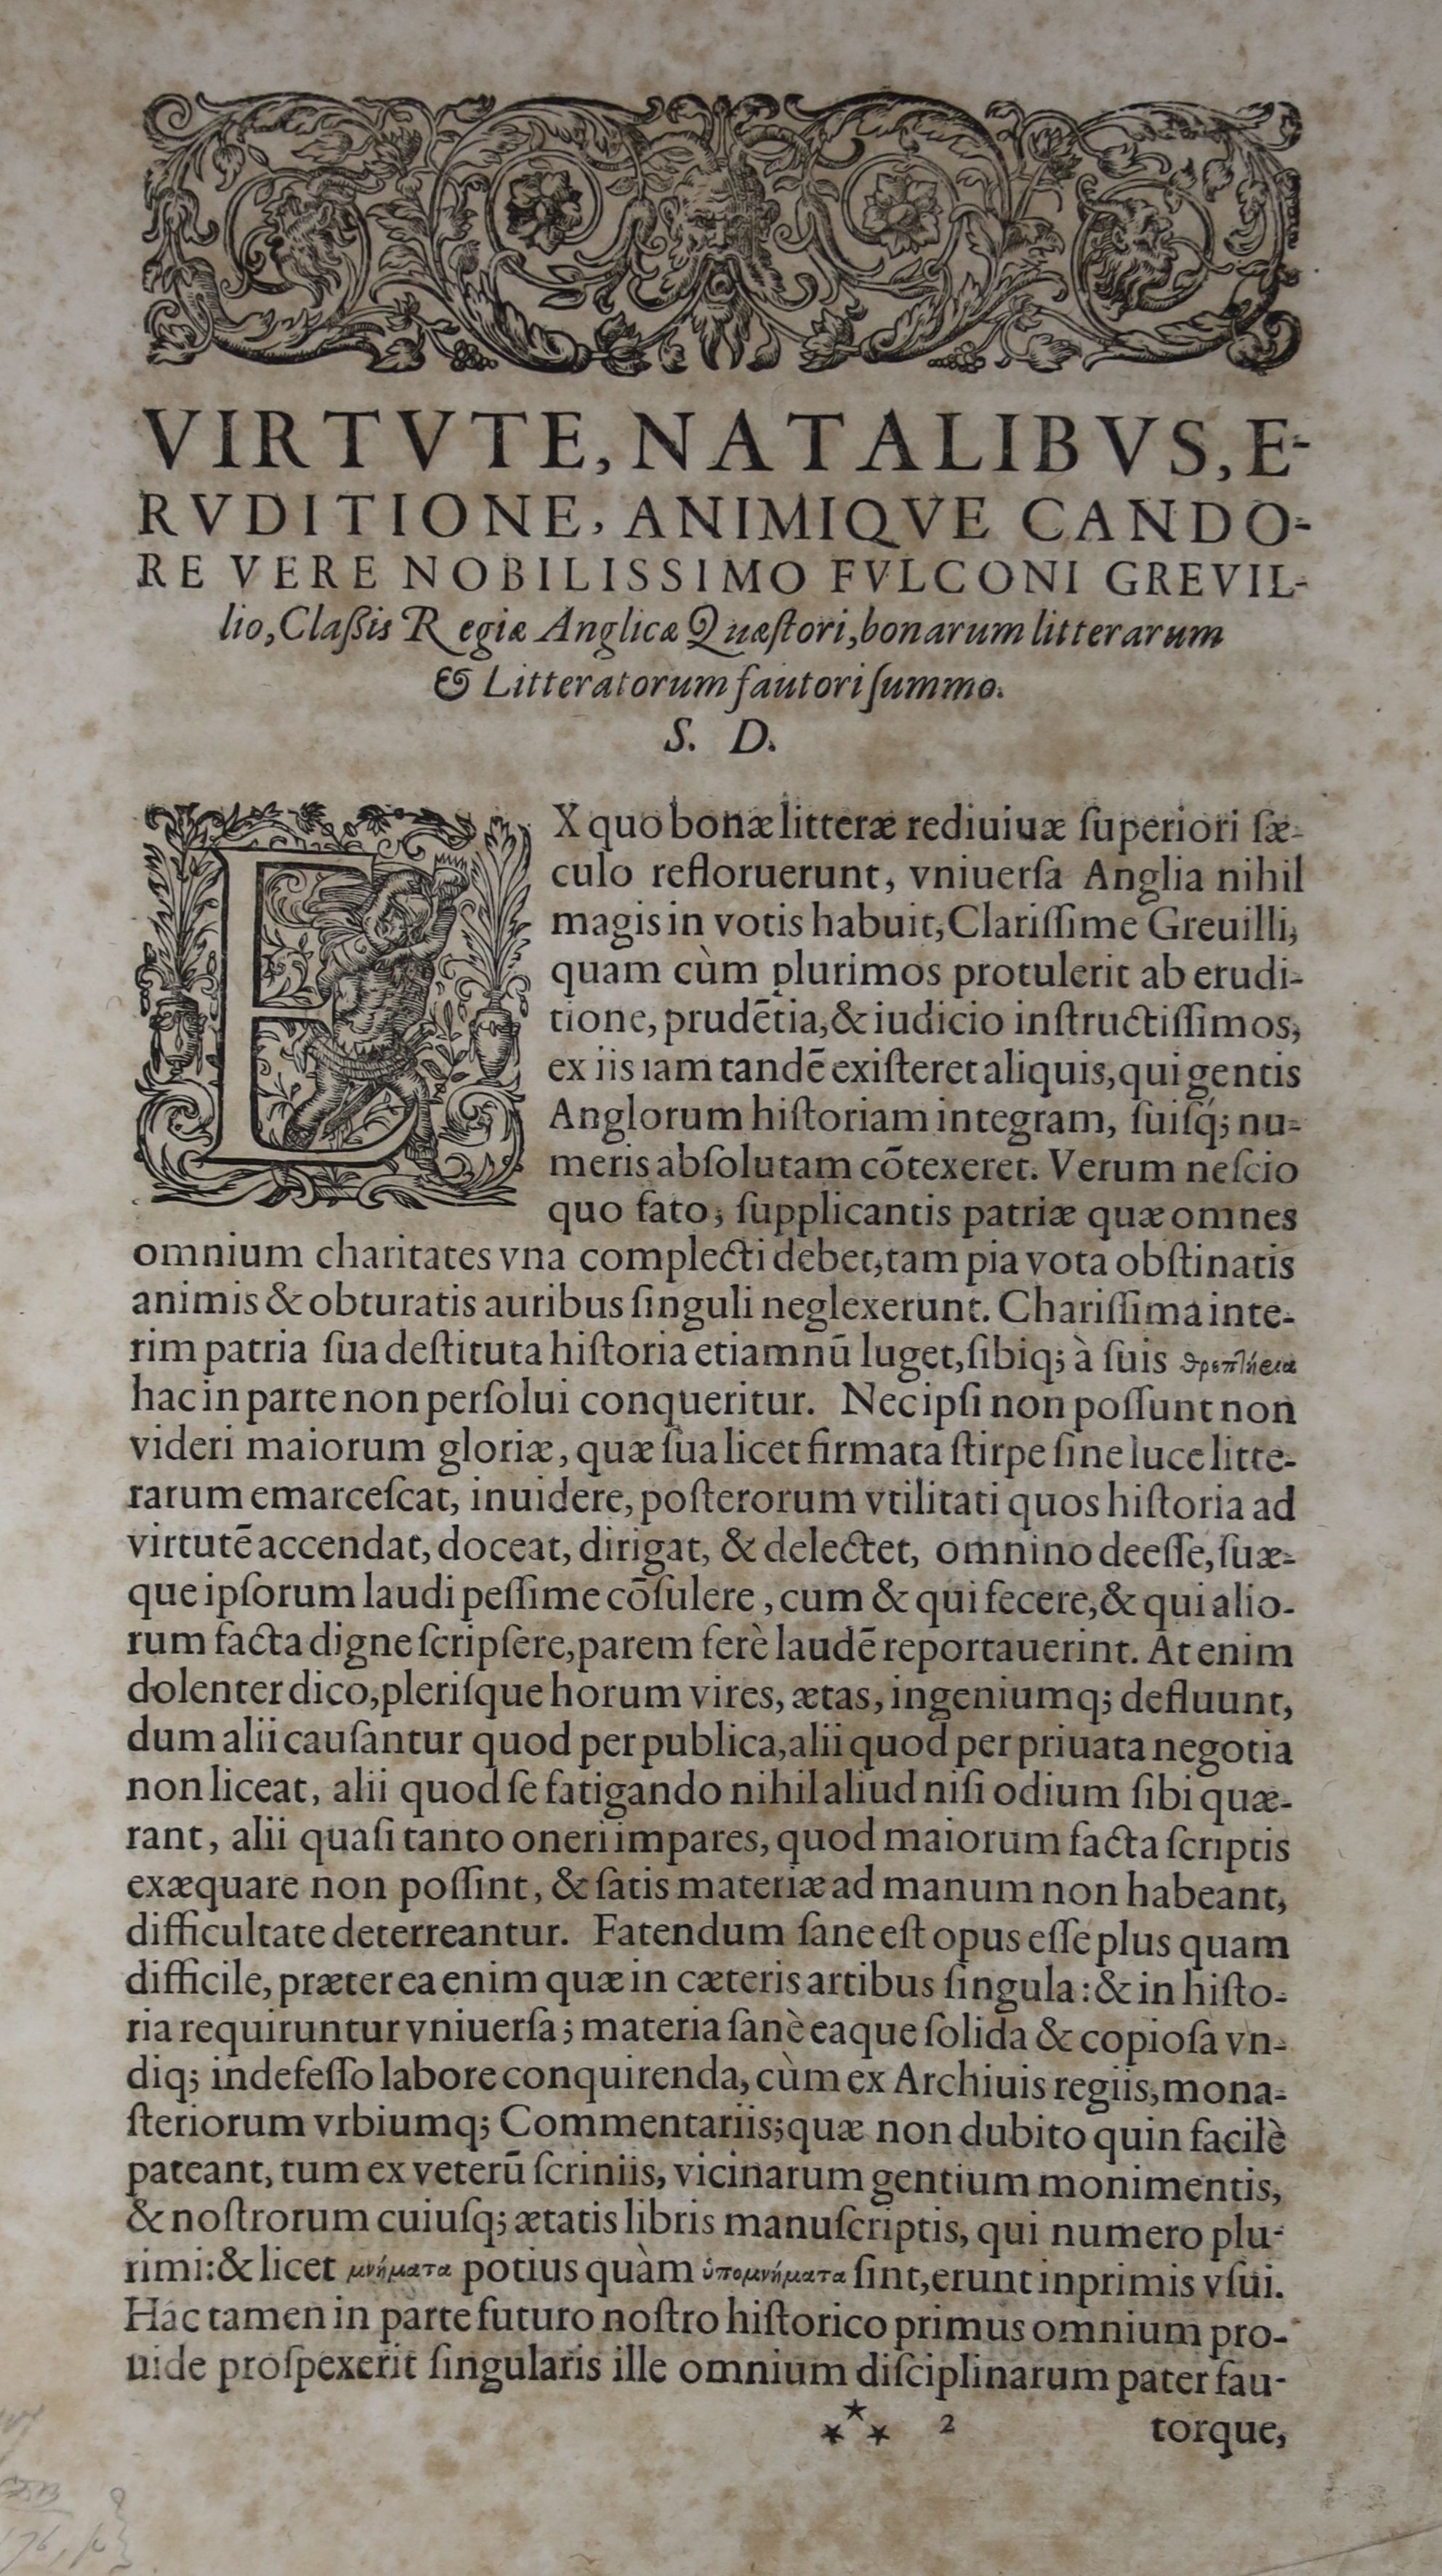 VIRTVTE, NATALIBVS, E-
RVDITIONE, ANIMIQVE CANDO-
RE VERE NOBILISSIMO FVLCONI GREVIL-
lio, Claſsis Regiæ Anglicæ Quæſtori, bonarum litterarum
& Litteratorum fautori ſummo.
S. D.
EX quo bonæ litteræ rediuiuæ ſuperiori ſæ-
culo refloruerunt, vniuerſa Anglia nihil
magis in votis habuit, Clariſſime Greuilli,
quam cùm plurimos protulerit ab erudi-
tione, prudētia, & iudicio inſtructiſſimos,
ex iis iam tandē exiſteret aliquis, qui gentis
Anglorum hiſtoriam integram, ſuiſq́; nu-
meris abſolutam cōtexeret. Verum neſcio
quo fato, ſupplicantis patriæ quæ omnes
omnium charitates vna complecti debet, tam pia vota obſtinatis
animis & obturatis auribus ſinguli neglexerunt. Chariſſima inte-
rim patria ſua deſtituta hiſtoria etiamnū luget, ſibiq; à ſuis θρεπλήεια
hac in parte non perſolui conqueritur. Nec ipſi non poſſunt non
videri maiorum gloriæ, quæ ſua licet firmata ſtirpe ſine luce litte-
rarum emarceſcat, inuidere, poſterorum vtilitati quos hiſtoria ad
virtutē accendat, doceat, dirigat, & delectet, omnino deeſſe, ſuæ-
que ipſorum laudi peſſime cōſulere, cum & qui fecere, & qui alio-
rum facta digne ſcripſere, parem ferè laudē reportauerint. At enim
dolenter dico, pleriſque horum vires, ætas, ingeniumq; defluunt,
dum alii cauſantur quod per publica, alii quod per priuata negotia
non liceat, alii quod ſe fatigando nihil aliud niſi odium ſibi quæ-
rant, alii quaſi tanto oneri impares, quod maiorum facta ſcriptis
exæquare non poſſint, & ſatis materiæ ad manum non habeant,
difficultate deterreantur. Fatendum ſane eſt opus eſſe plus quam
difficile, præter ea enim quæ in cæteris artibus ſingula: & in hiſto-
ria requiruntur vniuerſa; materia ſanè eaque ſolida & copioſa vn-
diq; indefeſſo labore conquirenda, cùm ex Archiuis regiis, mona-
ſteriorum vrbiumq; Commentariis; quæ non dubito quin facilè
pateant, tum ex veterū ſcriniis, vicinarum gentium monimentis,
& noſtrorum cuiuſq; ætatis libris manuſcriptis, qui numero plu-
rimi: & licet μνήματα potius quàm ὑπομνήματα ſint, erunt inprimis vſui.
Hac tamen in parte futuro noſtro hiſtorico primus omnium pro-
uide proſpexerit ſingularis ille omnium diſciplinarum pater fau-
⁂ 2 torque,